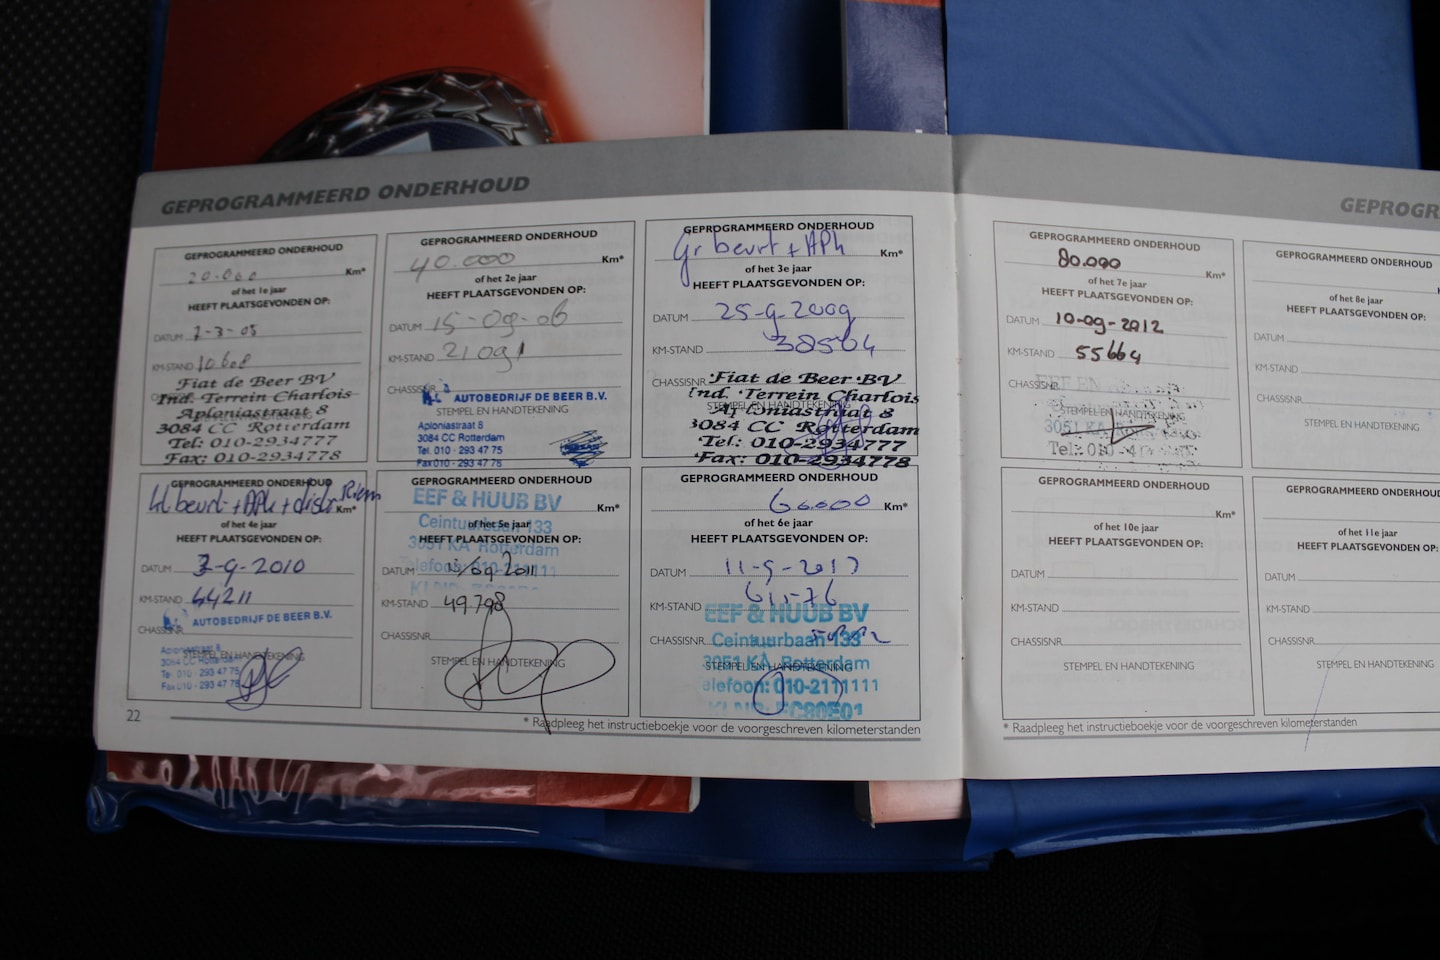 GEPROGRAMMEERD ONDERHOUD
GEPROGRAMMEERD ONDERHOUD
20.000 Km*
of het 1e jaar
HEEFT PLAATSGEVONDEN OP:
DATUM 2-3-05
KM-STAND 10608
Fiat de Beer BV
Ind. Terrein Charlois
Aploniastraat 8
3084 CC Rotterdam
Tel: 010-2934777
Fax: 010-2934778
GEPROGRAMMEERD ONDERHOUD
40.000 Km*
of het 2e jaar
HEEFT PLAATSGEVONDEN OP:
DATUM 15-09-06
KM-STAND 21091
CHASSISNR.
AUTOBEDRIJF DE BEER B.V.
STEMPEL EN HANDTEKENING
Aploniastraat 8
3084 CC Rotterdam
Tel. 010 - 293 47 75
Fax 010 - 293 47 78
GEPROGRAMMEERD ONDERHOUD
Gr beurt + APk Km*
of het 3e jaar
HEEFT PLAATSGEVONDEN OP:
DATUM 25-9-2009
KM-STAND 38504
CHASSISNR.
Fiat de Beer BV
Ind. Terrein Charlois
STEMPEL EN HANDTEKENING
Aploniastraat 8
3084 CC Rotterdam
Tel.: 010-2934777
Fax: 010-2934778
GEPROGRAMMEERD ONDERHOUD
kl beurt + APk + distr. Riem Km*
of het 4e jaar
HEEFT PLAATSGEVONDEN OP:
DATUM 3-9-2010
KM-STAND 44211
AUTOBEDRIJF DE BEER B.V.
CHASSISNR.
Aploniastraat 8
STEMPEL EN HANDTEKENING
3084 CC Rotterdam
Tel. 010 - 293 47 75
Fax 010 - 293 47 78
GEPROGRAMMEERD ONDERHOUD
EEF & HUUB BV
Km*
Ceintuurbaan 133
of het 5e jaar
HEEFT PLAATSGEVONDEN OP:
3051 KA Rotterdam
DATUM 2011
KM-STAND 49.798
CHASSISNR.
STEMPEL EN HANDTEKENING
GEPROGRAMMEERD ONDERHOUD
60.000 Km*
of het 6e jaar
HEEFT PLAATSGEVONDEN OP:
DATUM 11-9-2013
KM-STAND
EEF & HUUB BV
CHASSISNR.
Ceintuurbaan 133
STEMPEL EN HANDTEKENING
3051 KA Rotterdam
Telefoon: 010-2111111
22
* Raadpleeg het instructieboekje voor de voorgeschreven kilometerstanden
GEPROGR
GEPROGRAMMEERD ONDERHOUD
80.000 Km*
of het 7e jaar
HEEFT PLAATSGEVONDEN OP:
DATUM 10-09-2012
KM-STAND 55664
CHASSISNR.
STEMPEL EN HANDTEKENING
3051 KA
Tel.: 010-4
GEPROGRAMMEERD ONDERHOUD
of het 8e jaar
HEEFT PLAATSGEVONDEN OP:
DATUM
KM-STAND
CHASSISNR.
STEMPEL EN HANDTEKENING
GEPROGRAMMEERD ONDERHOUD
Km*
of het 10e jaar
HEEFT PLAATSGEVONDEN OP:
DATUM
KM-STAND
CHASSISNR.
STEMPEL EN HANDTEKENING
GEPROGRAMMEERD ONDERHOUD
of het 11e jaar
HEEFT PLAATSGEVONDEN OP:
DATUM
KM-STAND
CHASSISNR.
STEMPEL EN HANDTEKENING
* Raadpleeg het instructieboekje voor de voorgeschreven kilometerstanden